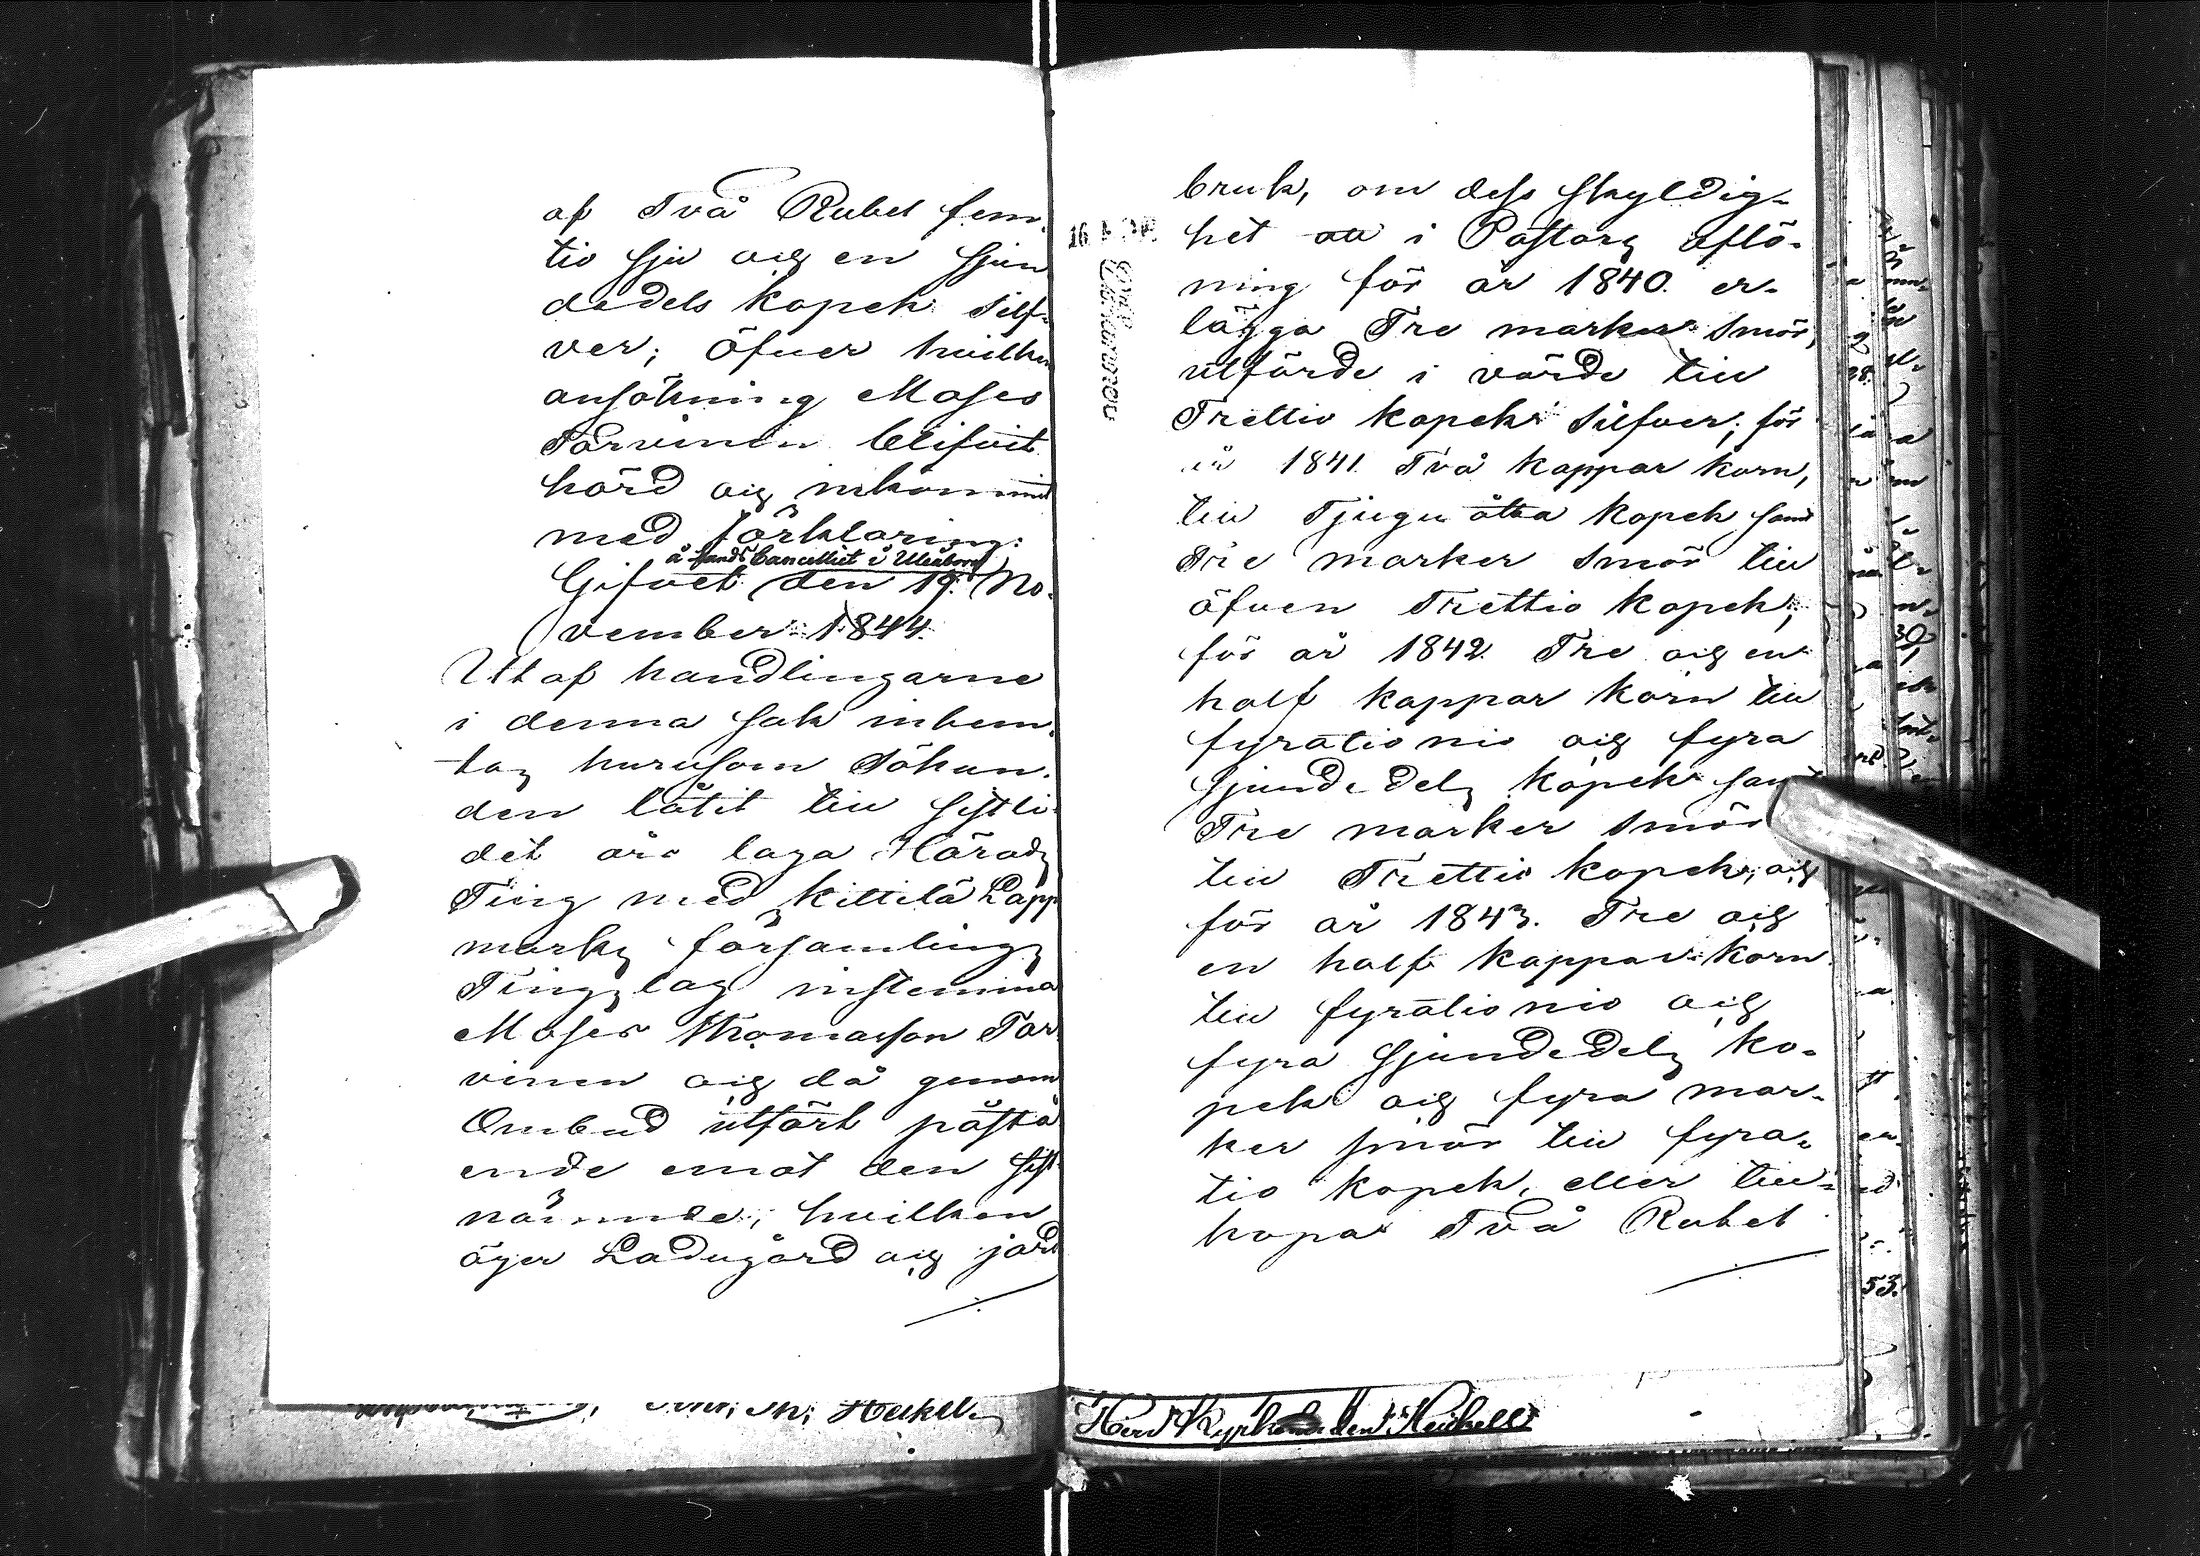 af Två Rubel fem-
tio sju och en sjun
dedels kopek Silf-
ver; öfver hvilken
ansökning Moses
Tarvinen blifvit
hörd och inkommit
med förklaring:
å Lands Cancelliet i Uleåborg
Gifvet den 19. No-
vember 1844.
Utaf handlingarne
i denna sak inhem-
tas hurusom Sökan-
den låtit till sistli-
det års laga Härads
Ting med Kittilä Lapp
marks församlings
Tingslag instemma
Moses Thomasson Tar
vinen och då genom
Ombud utfört påstå
ende emot den sist
nämnde, hvilken
äger Ladugård och jord
bruk, om dess skyldig-
het att i Pastors aflö-
ning för år 1840. er-
lägga Tre marker Smör,
utförde i värde till
Trettio kopek Silfver; för
år 1841. Två kappar korn,
till Tjugu åtta kopek samt
Tre marker smör till
äfven Trettio kopek;
för år 1842. Tre och en
half kappar korn till
fyratio nio och fyra
sjundedels kopek samt
Tre marker smör
till Trettio kopek, och
för år 1843. Tre och
en half kappar korn
till fyratio nio och
fyra sjundedels ko-
pek och fyra mar-
ker smör till fyra-
tio kopek, eller till-
hopa Två Rubel
53.